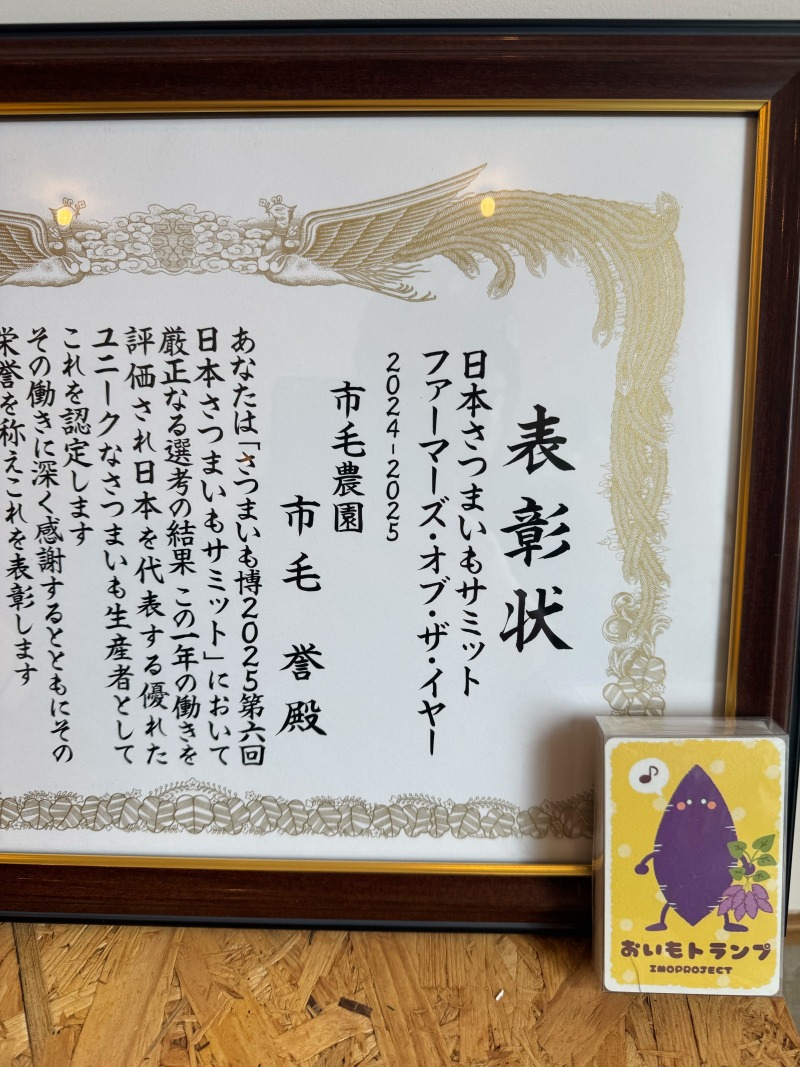 表彰状
日本さつまいもサミット
ファーマーズ・オブ・ザ・イヤー
2024-2025
市毛農園
市毛 誉殿
あなたは「さつまいも博2025第六回
日本さつまいもサミット」において
厳正なる選考の結果 この一年の働きを
評価され日本を代表する優れた
ユニークなさつまいも生産者として
これを認定します
その働きに深く感謝するとともにその
栄誉を称えこれを表彰します
おいもトランプ
IMOPROJECT